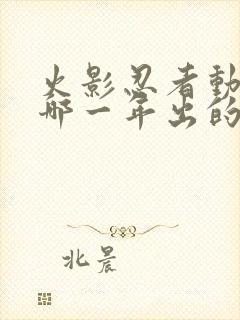 火影忍者動
哪一年出的
北晨